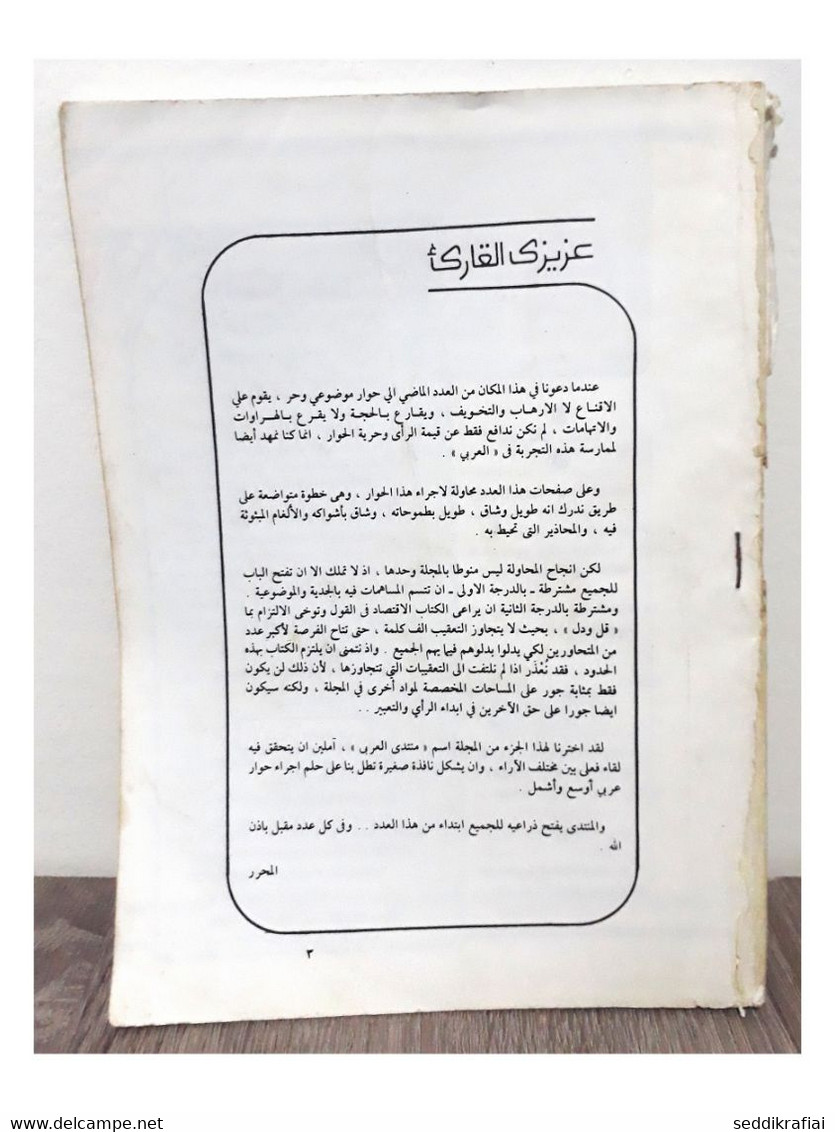 عزيزى القارئ
عندما دعونا في هذا المكان من العدد الماضي الي حوار موضوعي وحر ، يقوم علي
الاقناع لا الارهاب والتخويف ، ويقارع بالحجة ولا يقرع بالهراوات
والاتهامات ، لم نكن ندافع فقط عن قيمة الرأى وحرية الحوار ، انما كنا نمهد أيضا
لممارسة هذه التجربة فى « العربي » .
وعلى صفحات هذا العدد محاولة لاجراء هذا الحوار ، وهى خطوة متواضعة على
طريق ندرك انه طويل وشاق ، طويل بطموحاته ، وشاق بأشواكه والألغام المبثوثة
فيه ، والمحاذير التى تحيط به .
لكن انجاح المحاولة ليس منوطا بالمجلة وحدها ، اذ لا تملك الا ان تفتح الباب
للجميع مشترطة ـ بالدرجة الاولى ـ ان تتسم المساهمات فيه بالجدية والموضوعية .
ومشترطة بالدرجة الثانية ان يراعى الكتاب الاقتصاد فى القول وتوخى الالتزام بما
« قل ودل » ، بحيث لا يتجاوز التعقيب الف كلمة ، حتى تتاح الفرصة لأكبر عدد
من المتحاورين لكي يدلوا بدلوهم فيما يهم الجميع . واذ نتمنى ان يلتزم الكتاب بهذه
الحدود ، فقد نُعْذَر اذا لم نلتفت الى التعقيبات التي تتجاوزها ، لأن ذلك لن يكون
فقط بمثابة جور على المساحات المخصصة لمواد أخرى في المجلة ، ولكنه سيكون
ايضا جورا على حق الآخرين في ابداء الرأي والتعبير . .
لقد اخترنا لهذا الجزء من المجلة اسم « منتدى العربي » ، آملين ان يتحقق فيه
لقاء فعلى بين مختلف الآراء ، وان يشكل نافذة صغيرة نطل بنا على حلم اجراء حوار
عربي أوسع وأشمل .
والمنتدى يفتح ذراعيه للجميع ابتداء من هذا العدد . . وفى كل عدد مقبل باذن
الله .
المحرر
٣
www.delcampe.net
seddikrafiai